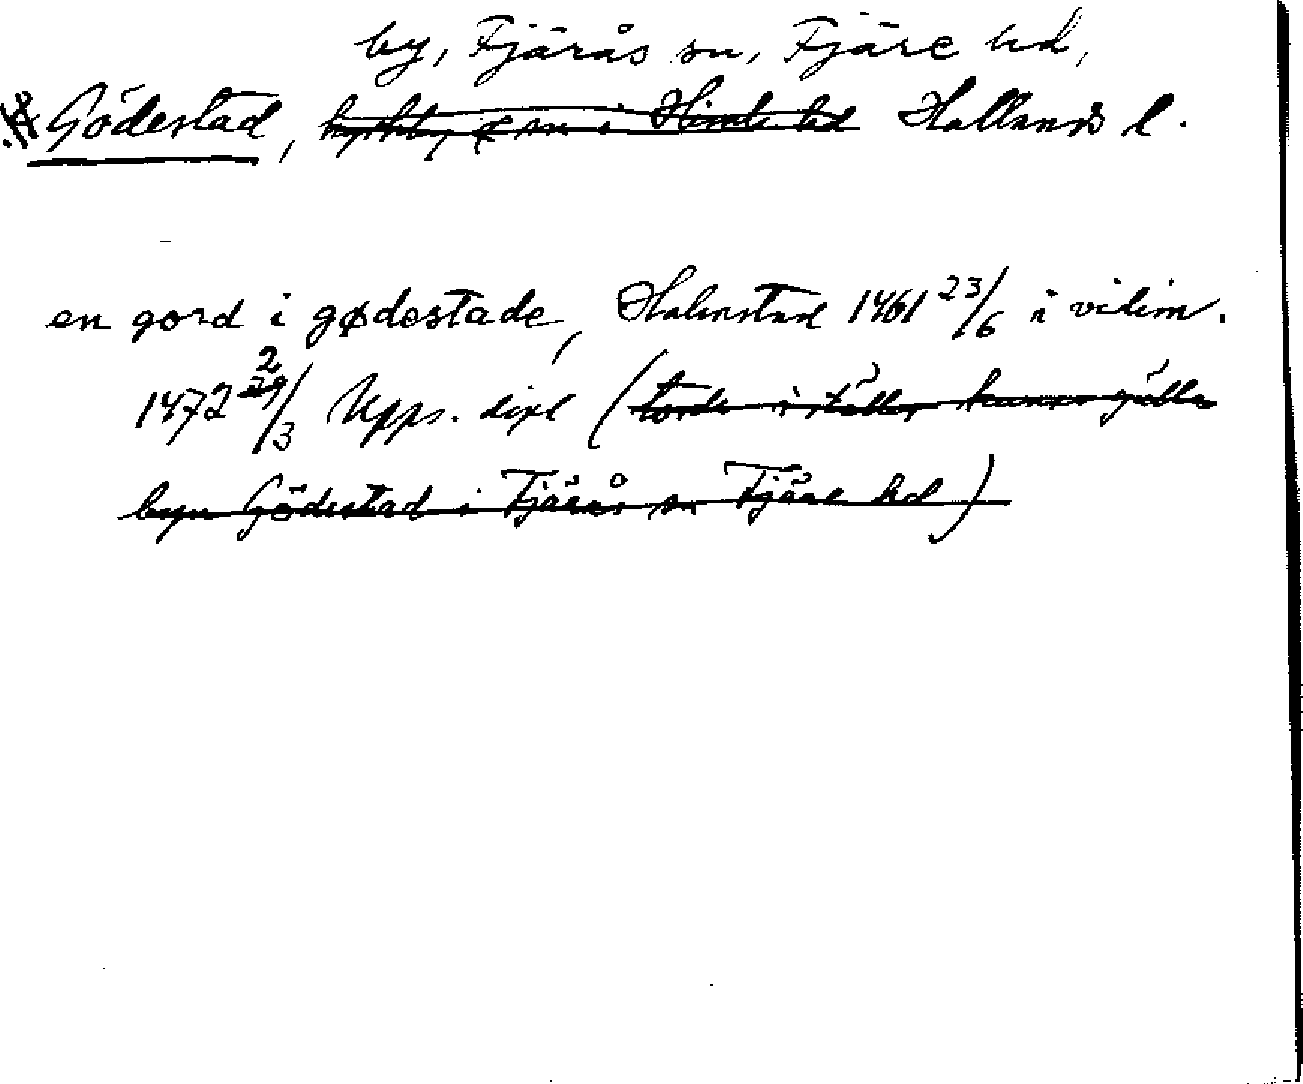 by, Fjärås sn, Fjäre hd,
Gödestad, kyrkby o sn i Himle hd Hallands l.
en gord i gødestade, Halmstad 1461 23/6 i vidim.
1472 2/3 Upps. dipl (torde i stället kunna gälla
byn Gödestad i Fjärås sn Fjäre hd)